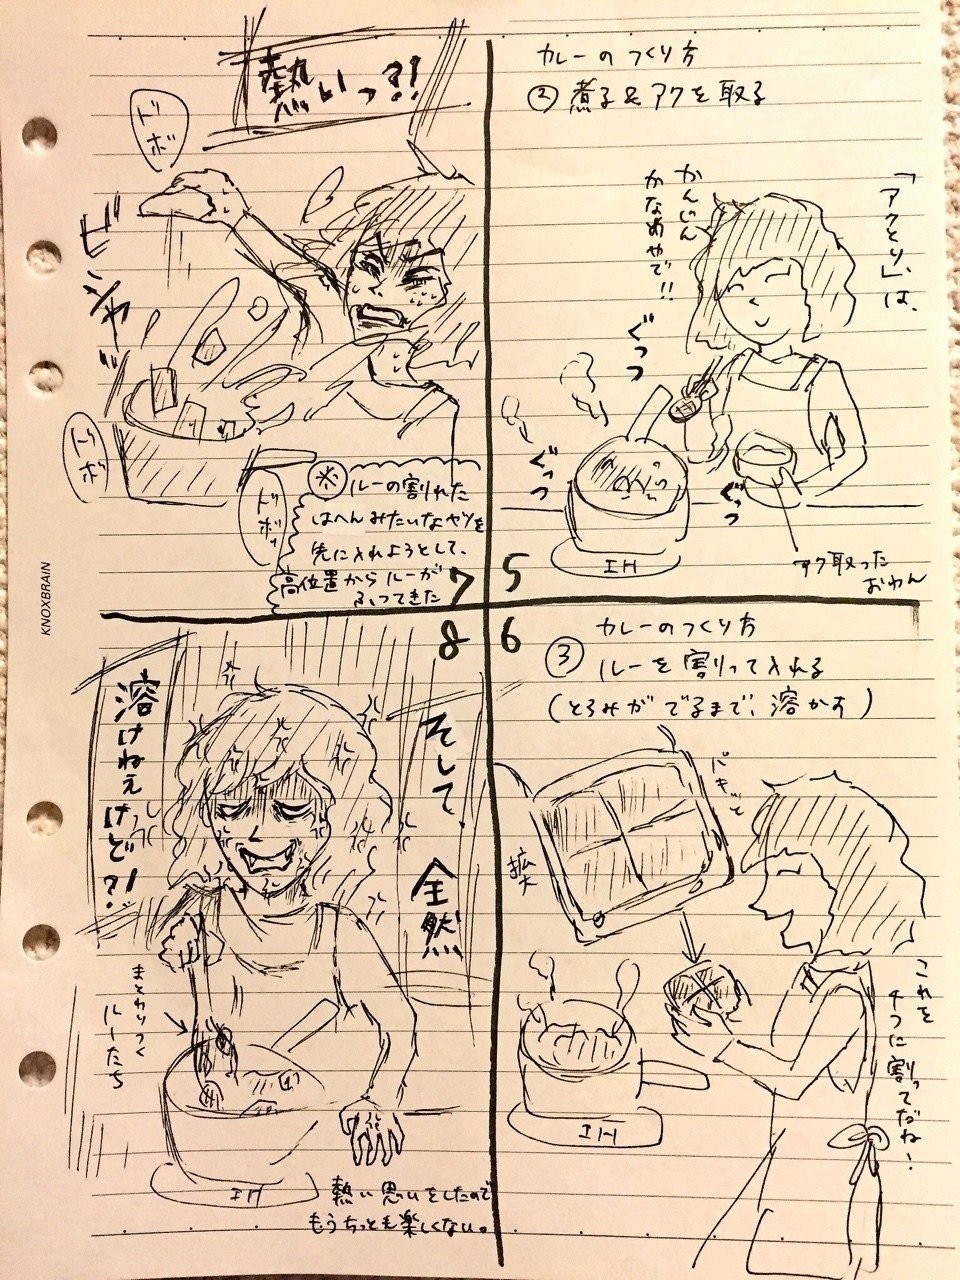 カレーのつくり方
②煮る&アクを取る
「アクとり」は、
かんじん
かなめやで!!
ぐつ
ぐっつ
ぐっつ
IH
アク取った
おわん
5
カレーのつくり方
③ルーを割って入れる
(とろみがでるまで、溶かす)
パキッと
拡大
これを
4つに割ってだね!
IH
6
熱いっ?!
ドボ
ビシャッ
ドボ
ドボッ
※ルーの割れた
はへんみたいなヤツを
先に入れようとして、
高位置からルーが
ふってきた
7
8
そして
全然
溶けねぇけど?!
まとわりつく
ルーたち
IH
熱い思いをしたので
もうちっとも楽しくない。
KNOXBRAIN